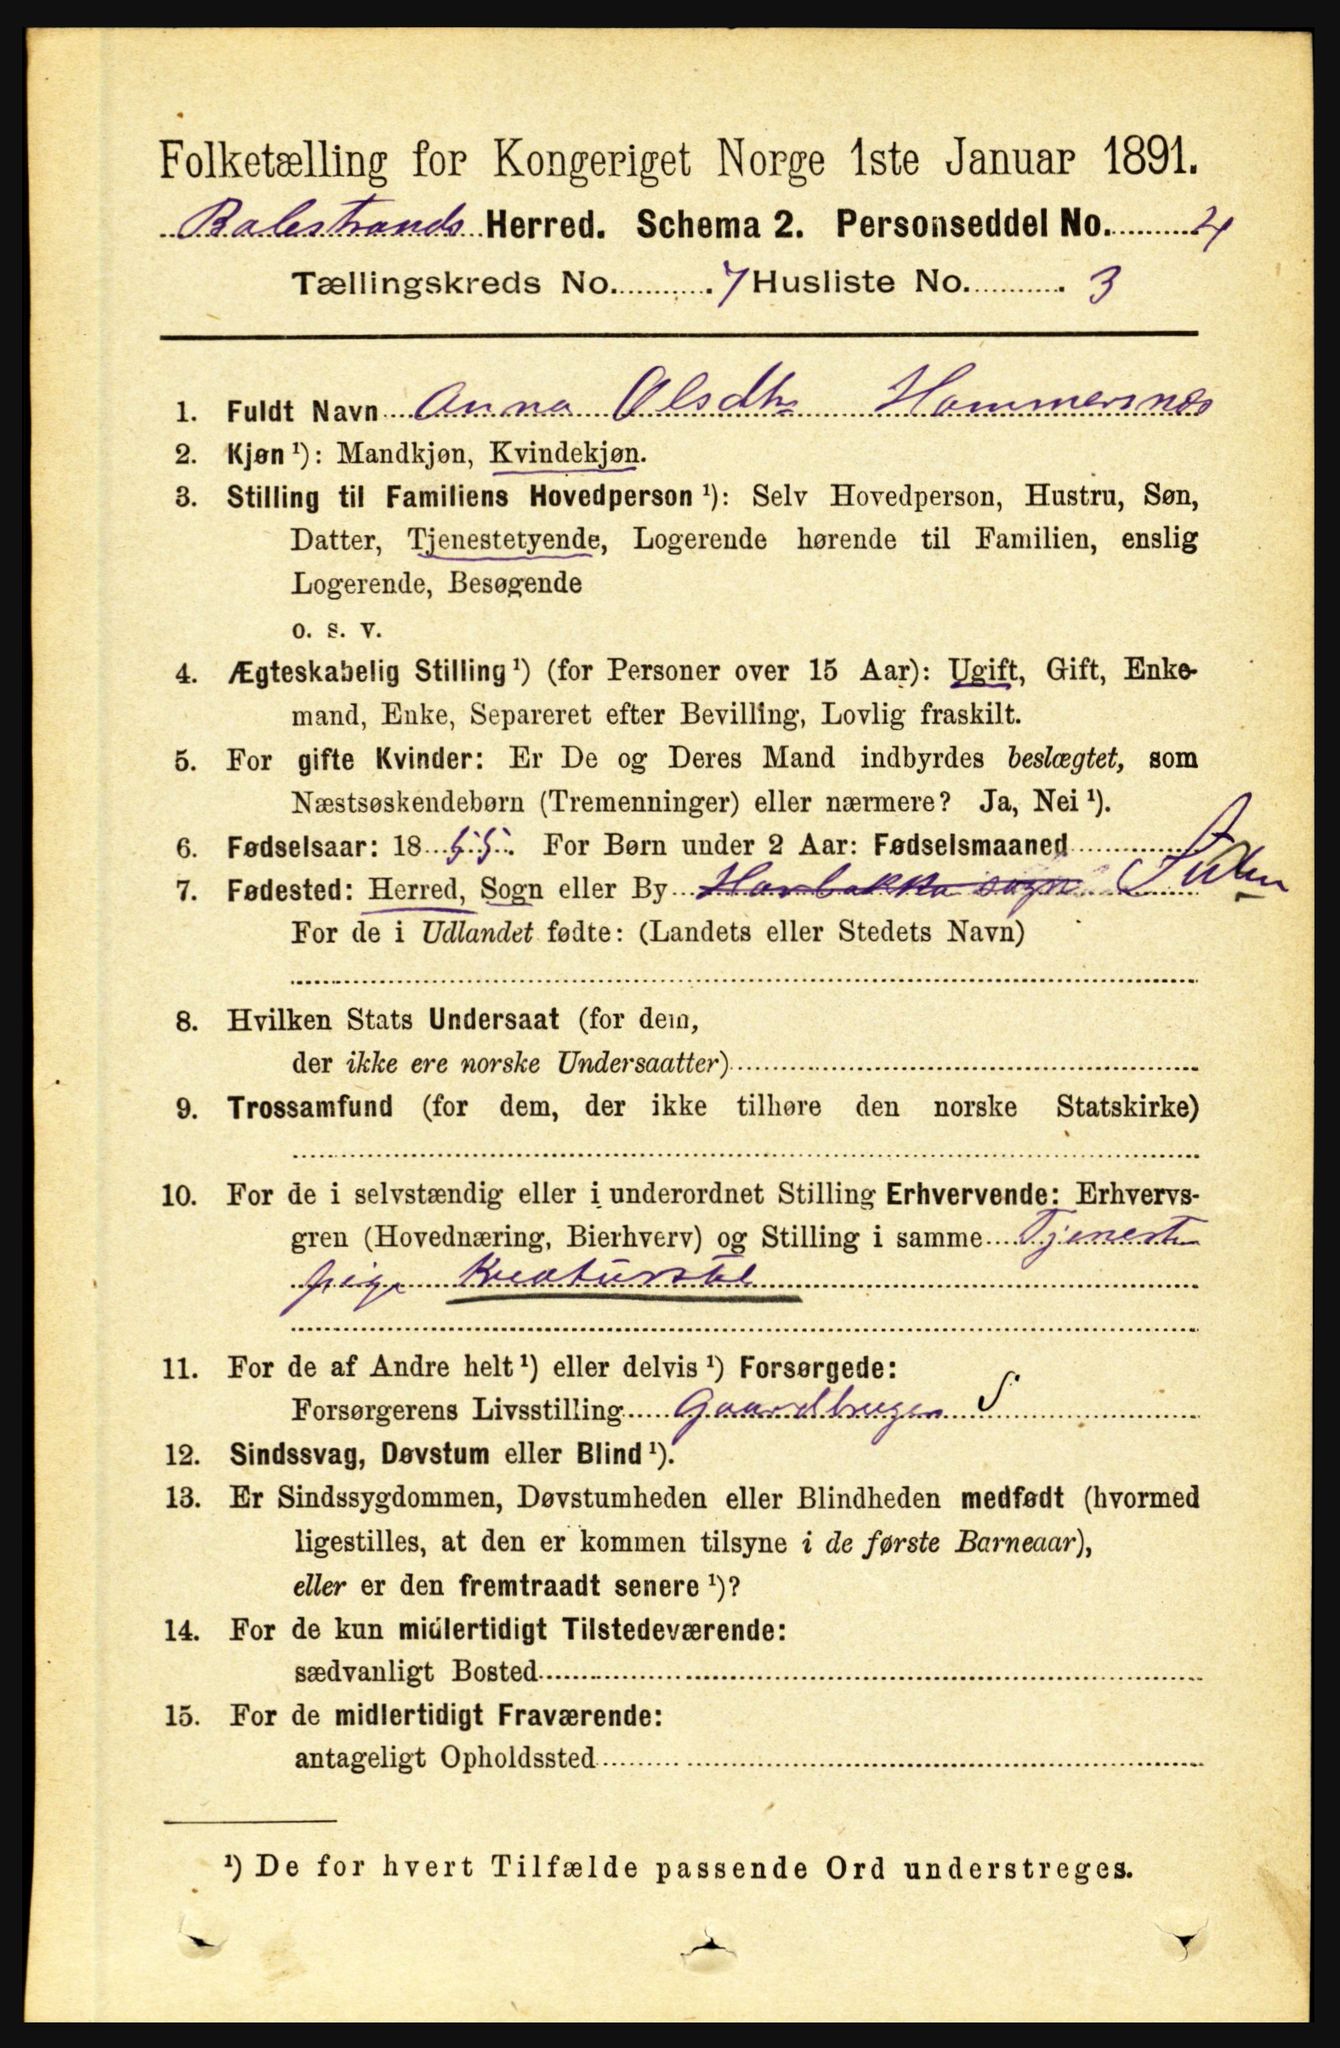 Folketælling for Kongeriget Norge 1ste Januar 1891.
Balestrands Herred. Schema 2. Personseddel No. 4
Tællingskreds No. 7 Husliste No. 3
1. Fuldt Navn Anna Olsdtr Hammersnæs
2. Kjøn ¹): Mandkjøn, Kvindekjøn.
3. Stilling til Familiens Hovedperson ¹): Selv Hovedperson, Hustru, Søn,
Datter, Tjenestetyende, Logerende hørende til Familien, enslig
Logerende, Besøgende
o. s. v.
4. Ægteskabelig Stilling ¹) (for Personer over 15 Aar): Ugift, Gift, Enke-
mand, Enke, Separeret efter Bevilling, Lovlig fraskilt.
5. For gifte Kvinder: Er De og Deres Mand indbyrdes beslægtet, som
Næstsøskendebørn (Tremenninger) eller nærmere? Ja, Nei ¹).
6. Fødselsaar: 18 55. For Børn under 2 Aar: Fødselsmaaned
7. Fødested: Herred, Sogn eller By sogn
For de i Udlandet fødte: (Landets eller Stedets Navn)
8. Hvilken Stats Undersaat (for dem,
der ikke ere norske Undersaatter)
9. Trossamfund (for dem, der ikke tilhøre den norske Statskirke)
10. For de i selvstændig eller i underordnet Stilling Erhvervende: Erhvervs-
gren (Hovednæring, Bierhverv) og Stilling i samme Tjeneste
pige Kreaturstel
11. For de af Andre helt ¹) eller delvis ¹) Forsørgede:
Forsørgerens Livsstilling Gaardbruger S
12. Sindssvag, Døvstum eller Blind ¹).
13. Er Sindssygdommen, Døvstumheden eller Blindheden medfødt (hvormed
ligestilles, at den er kommen tilsyne i de første Barneaar),
eller er den fremtraadt senere ¹)?
14. For de kun midlertidigt Tilstedeværende:
sædvanligt Bosted
15. For de midlertidigt Fraværende:
antageligt Opholdssted
¹) De for hvert Tilfælde passende Ord understreges.